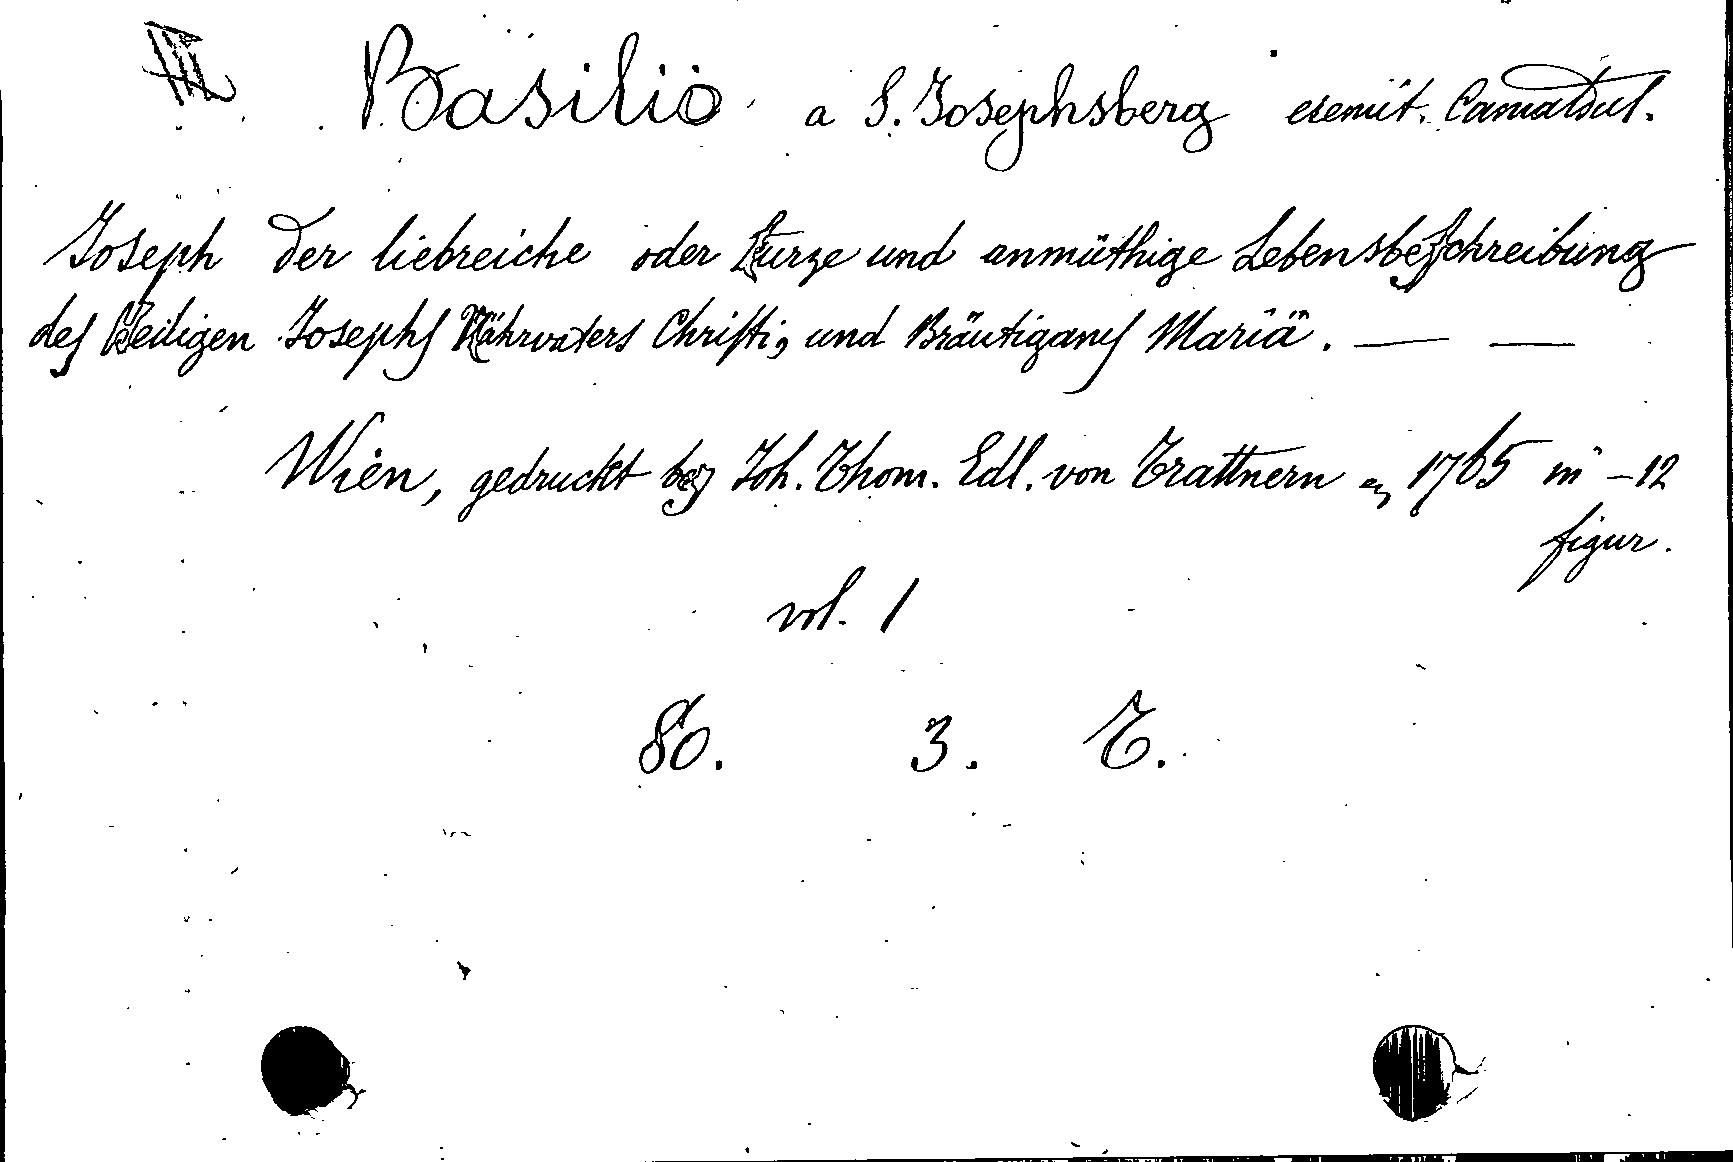 III Basilio a S. Josephsberg eremit. Camaldul.
Joseph der liebreiche oder Kurze und anmüthige Lebensbeschreibung
des Heiligen Josephs Nährvaters Christi, und Bräutigams Mariä. — —
Wien, gedruckt bey Joh. Thom. Edl. von Trattnern 1765 in -12
figur.
vol. 1
80. 3. T.